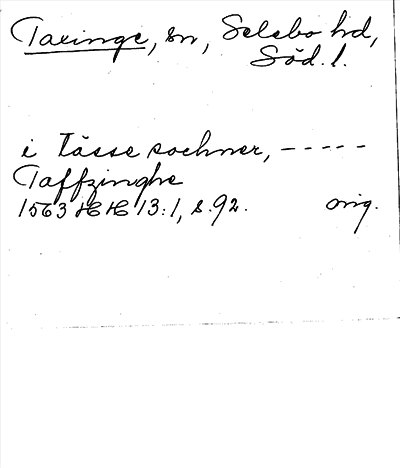 Taxinge, sn, Selebo hd,
Söd. l.
i Tässe sochner, -----
Taffzinghe
1563 HH 13:1, s. 92. orig.